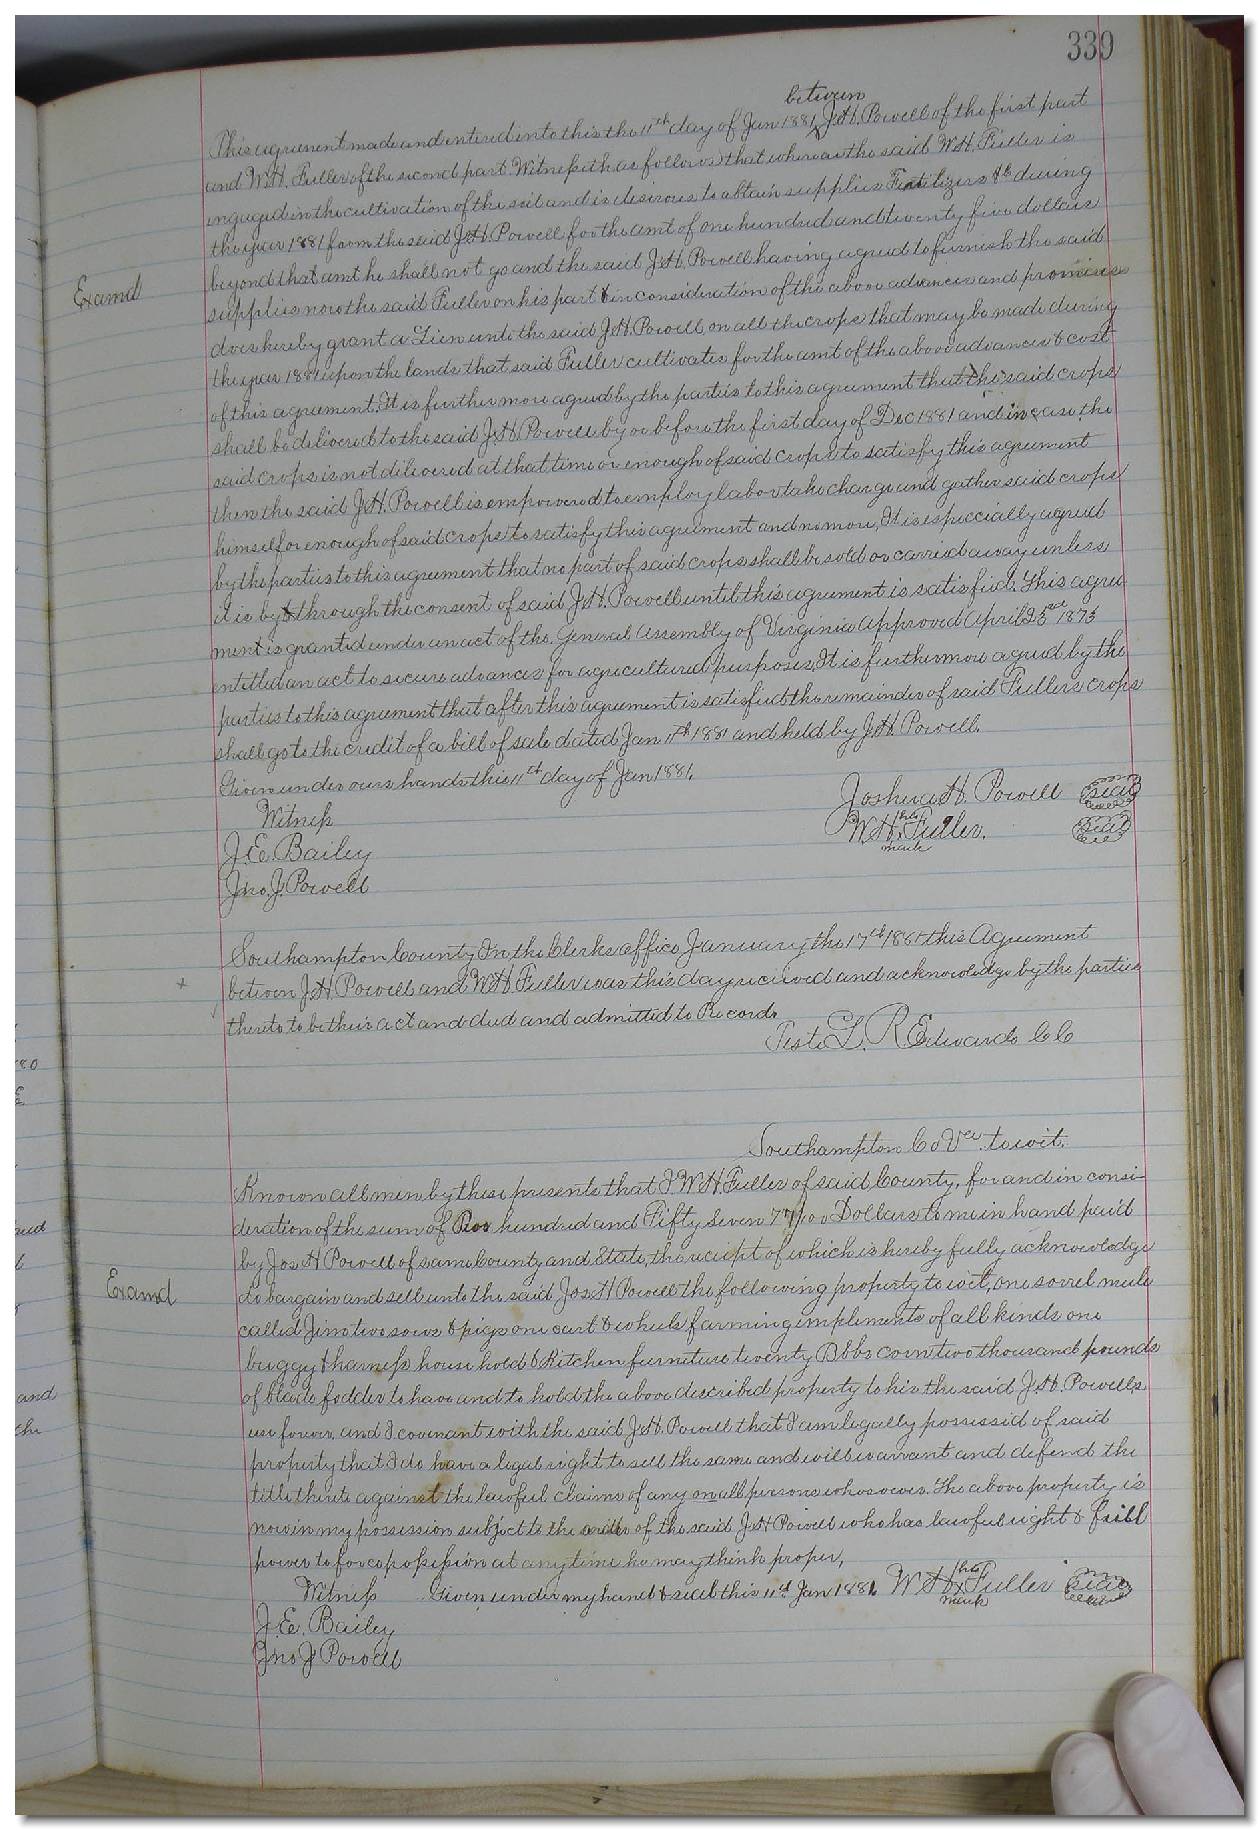 339
between
This agreement made and entered into this the 11th day of Jan 1881 J.H. Powell of the first part
and W.H. Fuller of the second part Witnesseth as follows that whereas the said W.H. Fuller is
engaged in the cultivation of the soil and is desirous to obtain supplies Fertilizers &c during
the year 1881 from the said J.H. Powell for the amt of one hundred and twenty five dollars
beyond that amt he shall not go and the said J.H. Powell having agreed to furnish the said
Examd
supplies now the said Fuller on his part & in consideration of the above advances and promises
does hereby grant a Lien unto the said J.H. Powell on all the crops that may be made during
the year 1881 upon the lands that said Fuller cultivates for the amt of the above advances & cost
of this agreement. It is further more agreed by the parties to this agreement that the said crops
shall be delivered to the said J.H. Powell by or before the first day of Dec 1881 and in case the
said crops is not delivered at that time or enough of said crops to satisfy this agreement
then the said J.H. Powell is empowered to employ labor take charge and gather said crops
himself or enough of said crops to satisfy this agreement and no more, It is especcially agreed
by the parties to this agreement that no part of said crops shall be sold or carried away unless
it is by & through the consent of said J.H. Powell until this agreement is satisfied. This agree
ment is granted under an act of the General Assembly of Virginia Approved April 2 1873
entitled an act to secure advances for agricultural purposes, It is furthermore agreed by the
parties to this agreement that after this agreement is satisfied the remainder of said Fullers crops
shall go to the credit of a bill of sale dated Jan 11th 1881 and held by J.H. Powell.
Given under ours hands this 11th day of Jan 1881.
Witness
Joshua H. Powell Seal
his
W H. Fuller. Seal
mark
J.E. Bailey
Jno. J. Powell
Southampton County In the Clerks office January the 17th 1881 this Agreement
between J.H Powell and W.H Fuller was this day received and acknowledge by the parties
thereto to be their act and deed and admitted to Record.
Teste L. R Edwards C C
Southampton Co Va. to wit.
Known all men by these presents that I W.H. Fuller of said County, for and in consi-
deration of the sum of hundred and Fifty Seven 77/100 Dollars to me in hand paid
by Jos H Powell of same County and State, the receipt of which is hereby fully acknowledge
Examd
do bargain and sell unto the said Jos. H Powell the following property to wit, one sorrel mule
called Jim two sows & pigs one cart & wheels farming implements of all kinds one
buggy & harness house hold & Kitchen furniture twenty Bbbs corn two thousand pounds
of blade fodder to have and to hold the above described property to his the said J.H. Powells
use forever, and I covenant with the said J.H. Powell that I am legally possessid of said
property that I do have a legal right to sell the same and will warrant and defend the
title thereto against the lawful claims of any on all persons whosoever. The above property is
now in my possession subject to the order of the said J.H Powell who has lawful right & full
power to force possession at any time he may think proper,
Witness Given under my hand & seal this 11th Jan 1881. W H Fuller Seal
his
mark
J.E. Bailey
Jno J Powell